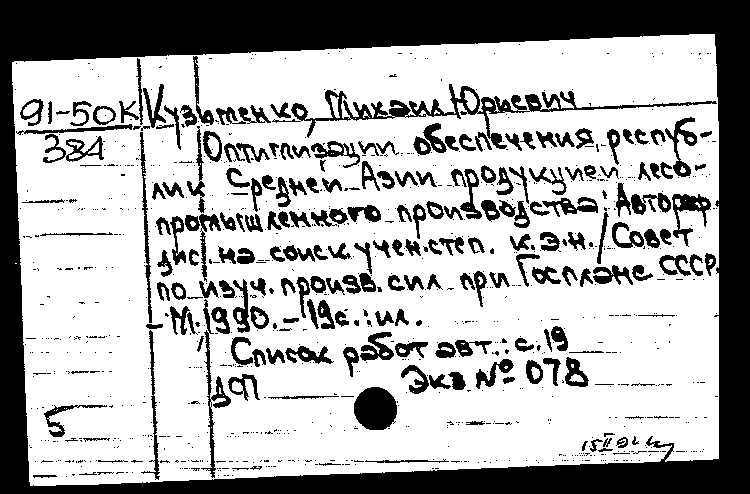 91-50К Кузьменко, Михаил Юриевич
384 Оптимизации обеспечения респуб-
лик Средней Азии продукцией лесо-
промышленного производства: Автореф.
дис. на соиск. учен. степ. к.э.н. / Совет
по изуч. произв. сил при Госплане СССР.
- М. 1990. - 19с.: ил.
Список работ авт.: с. 19
ДСП Экз № 078
5